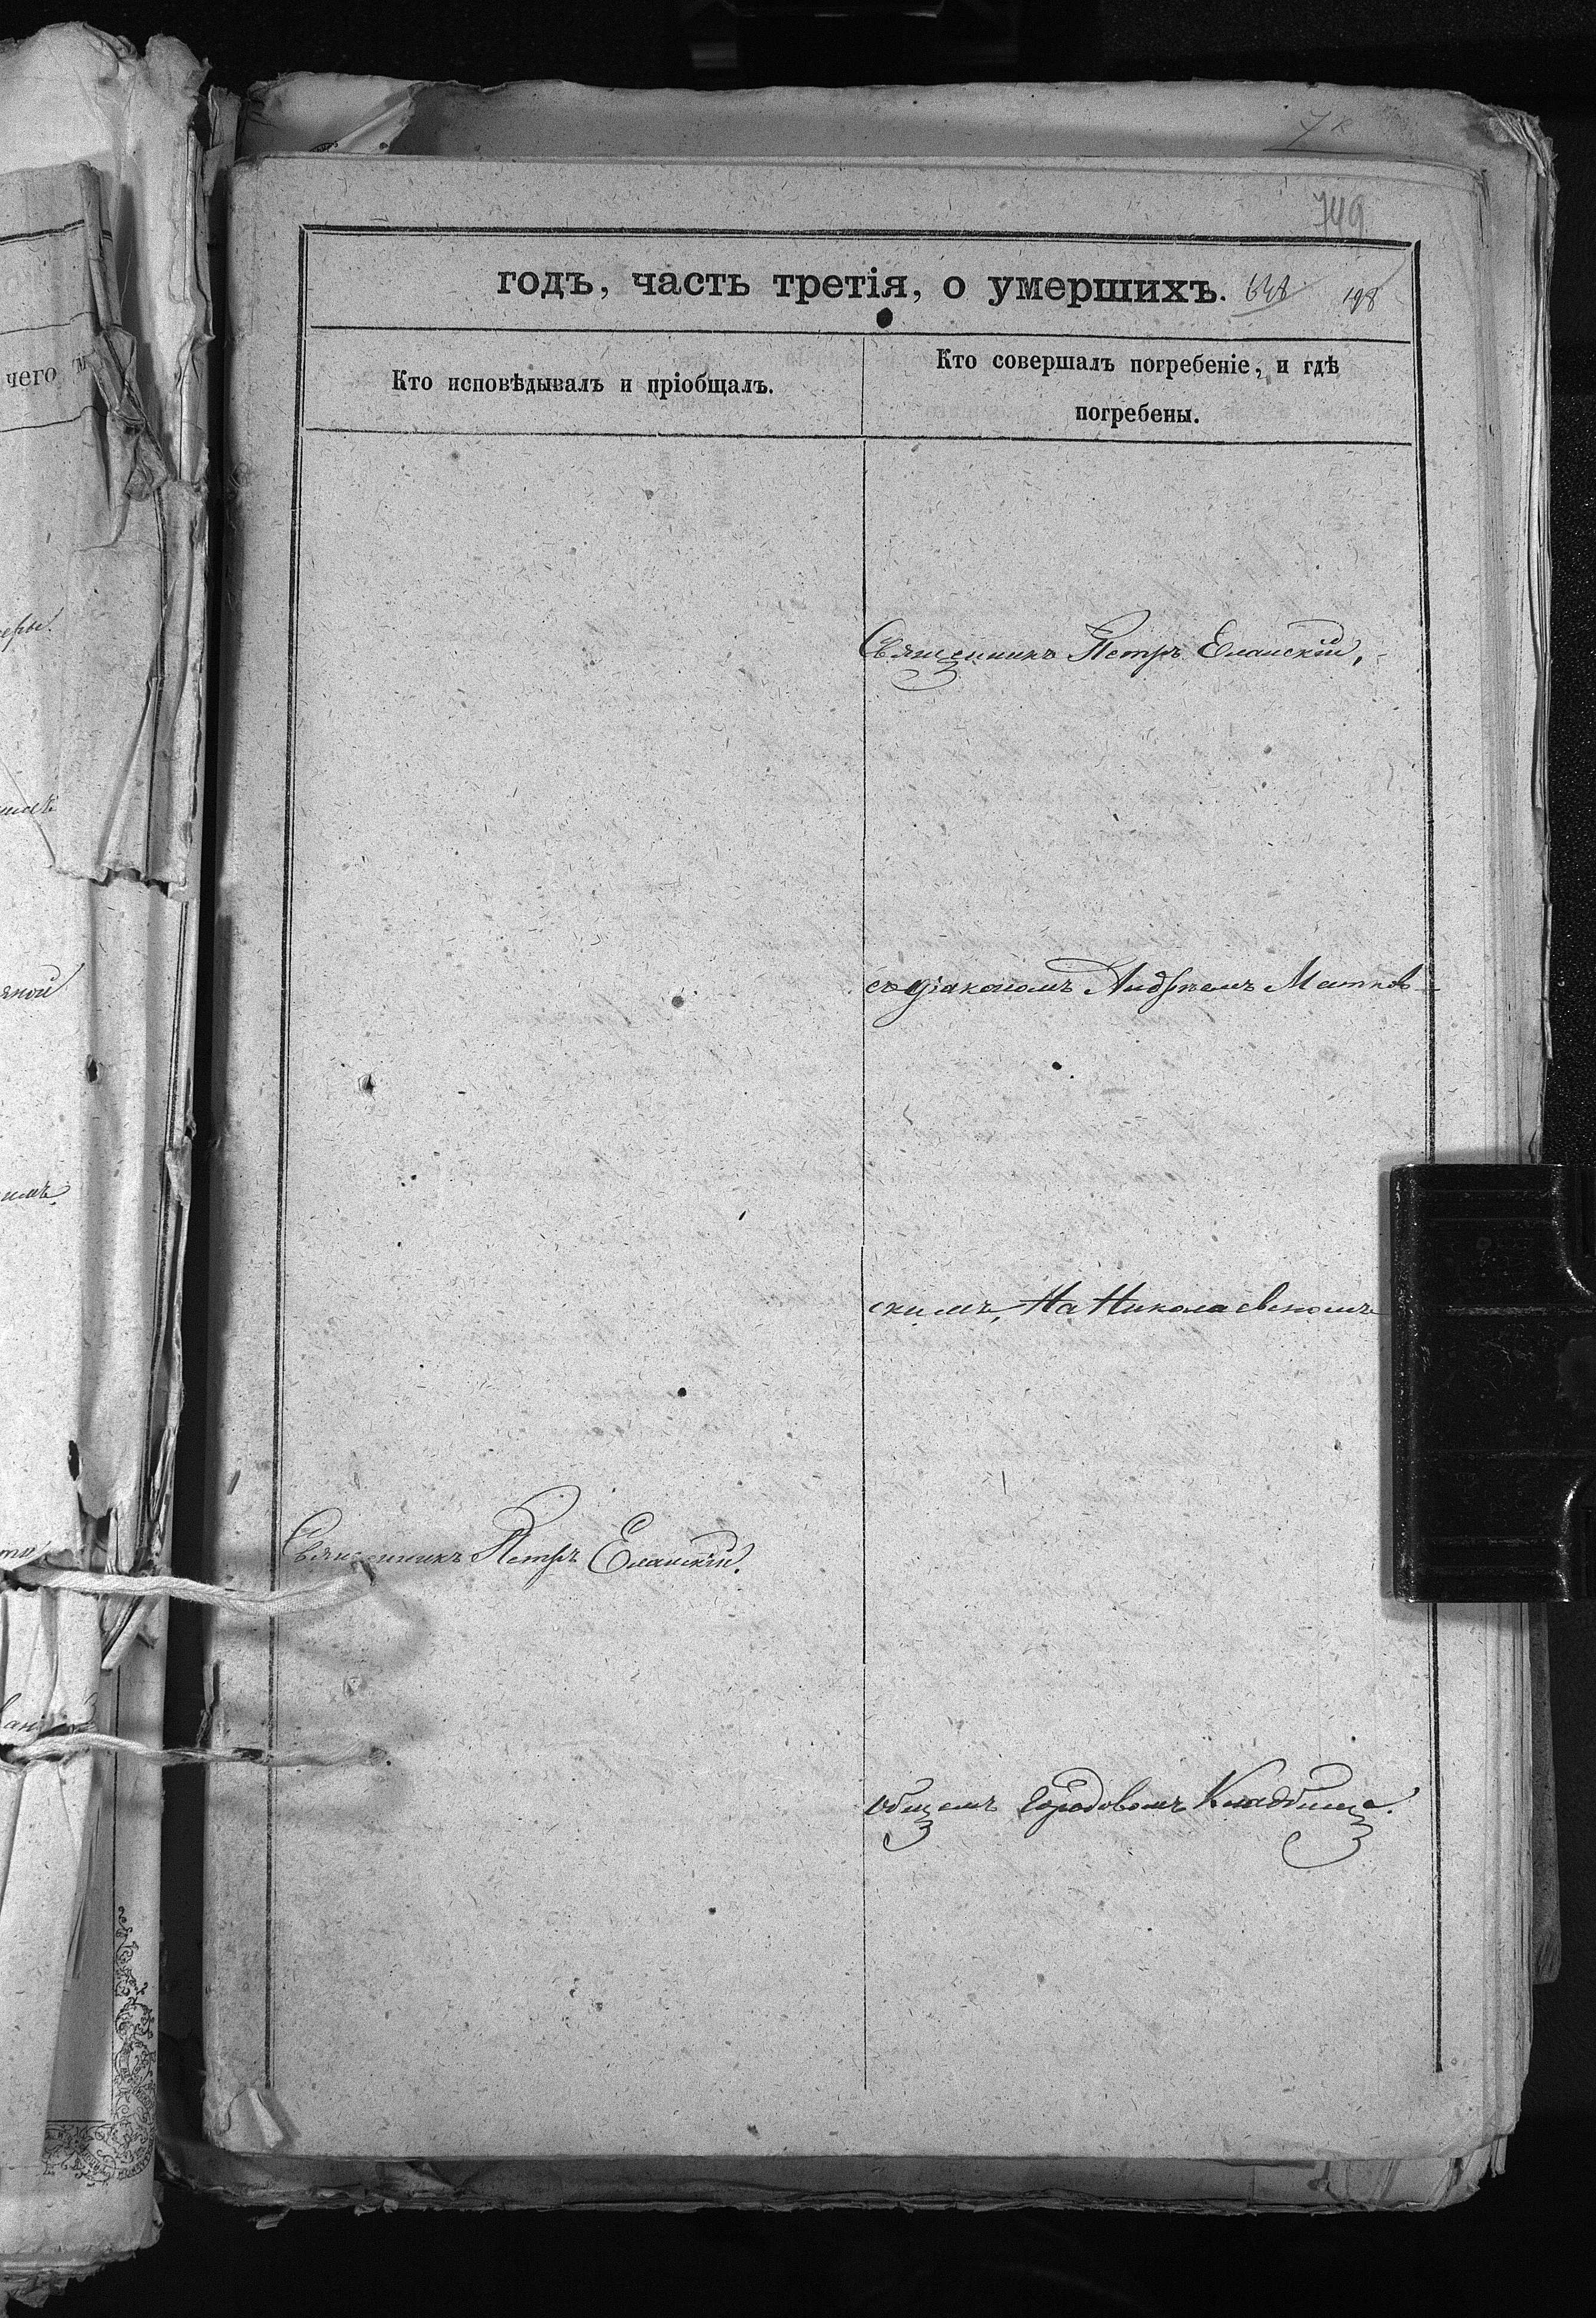 7к
749
годъ, часть третія, о умершихъ. 648 198
чего
Кто исповѣдывалъ и пріобщалъ.
Кто совершалъ погребеніе, и гдѣ
погребены.
Священникъ Петръ Еланскій,
съ діакономъ Андреемъ Матков-
скимъ, На Николаевскомъ
Священникъ Петръ Еланскій.
общемъ городовомъ Кладбище.